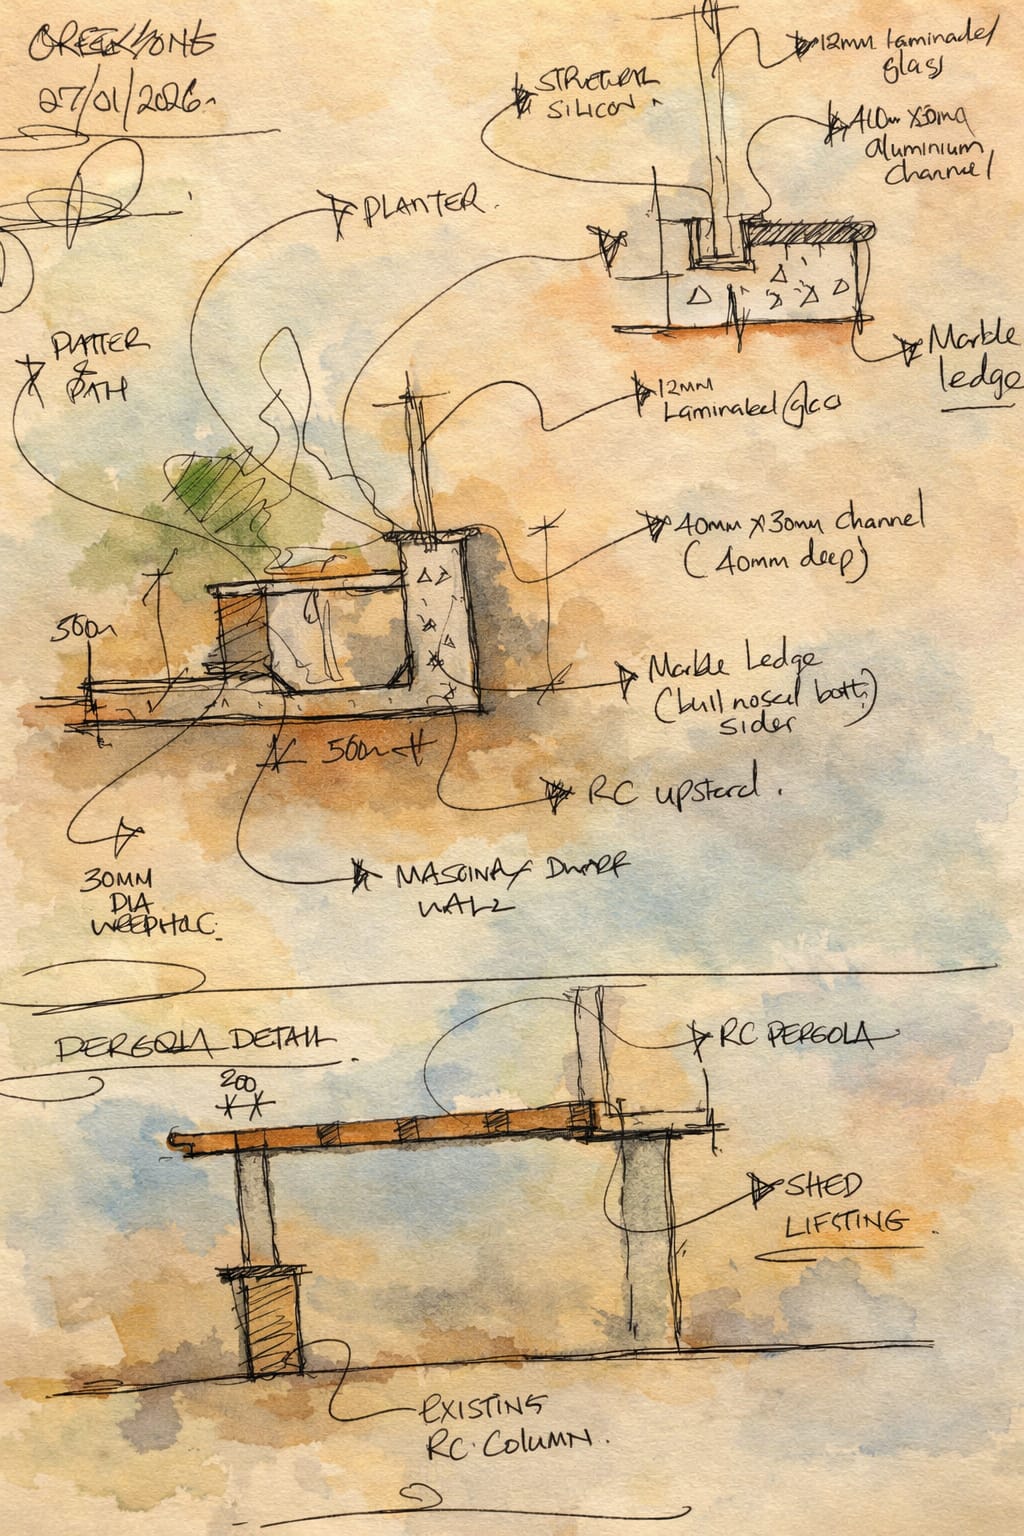 27/01/2026
12mm Laminaded
glass
STRUCTURAL
SILICON
aluminium
channel
PLANTER
&
PATH
Marble
ledge
12MM
Laminated glass
40mm x 30mm channel
(40mm deep)
Marble Ledge
(bull nosed both
sides
500
RC upstard.
MASONARY DWARF
WALL
30MM
DIA
PERGOLA DETAIL
200
RC PERGOLA
SHED
EXISTING
RC. COLUMN.